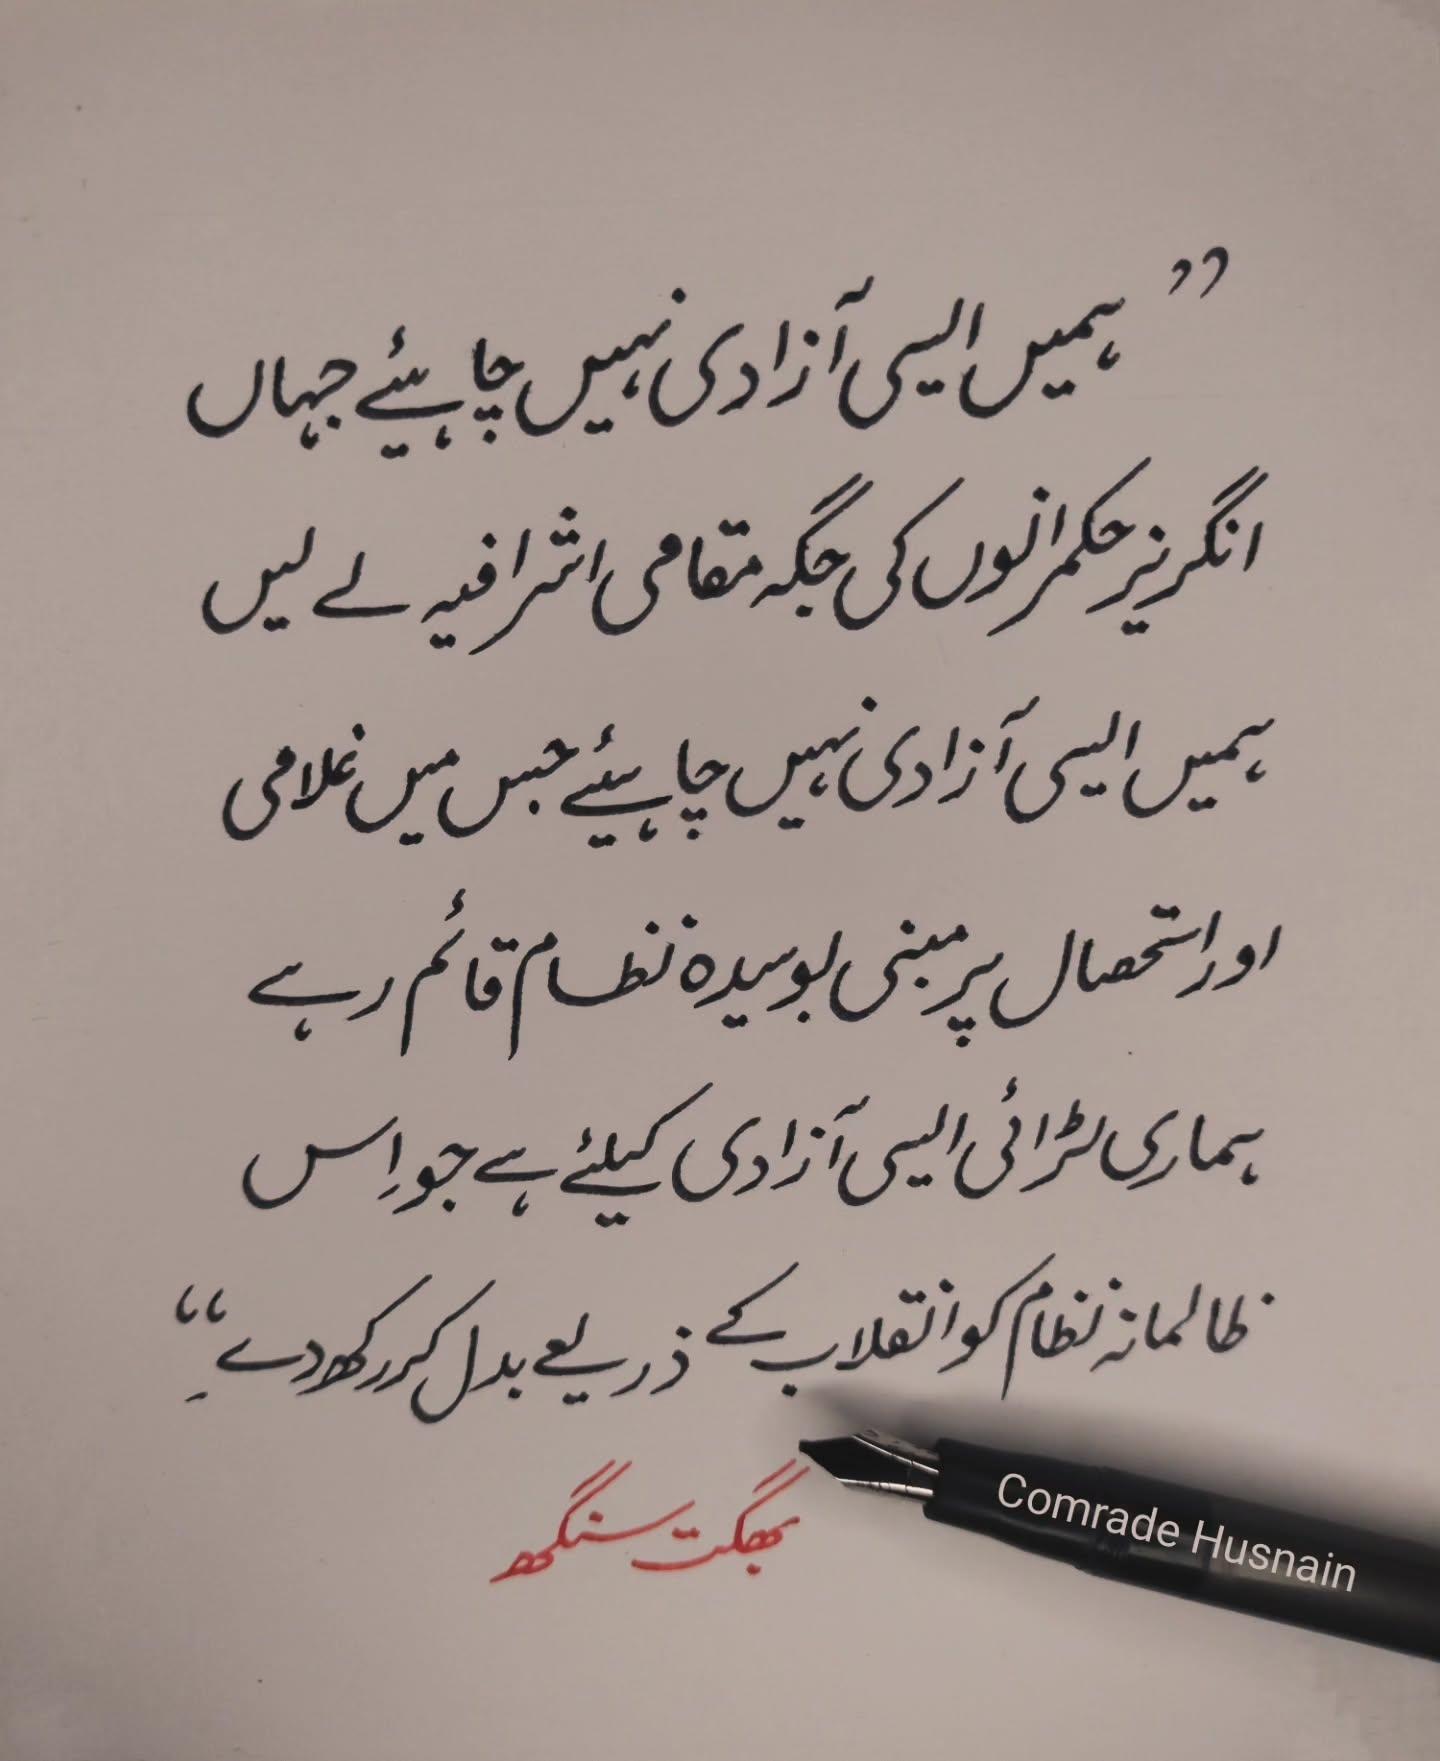 ”ہمیں ایسی آزادی نہیں چاہئیے جہاں
انگریز حکمرانوں کی جگہ مقامی اشرافیہ لے لیں
ہمیں ایسی آزادی نہیں چاہئیے جس میں غلامی
اور استحصال پر مبنی بوسیدہ نظام قائم رہے
ہماری لڑائی ایسی آزادی کیلئے ہے جو اِس
ظالمانہ نظام کو انقلاب کے ذریعے بدل کر رکھ دے۔“
بھگت سنگھ
Comrade Husnain